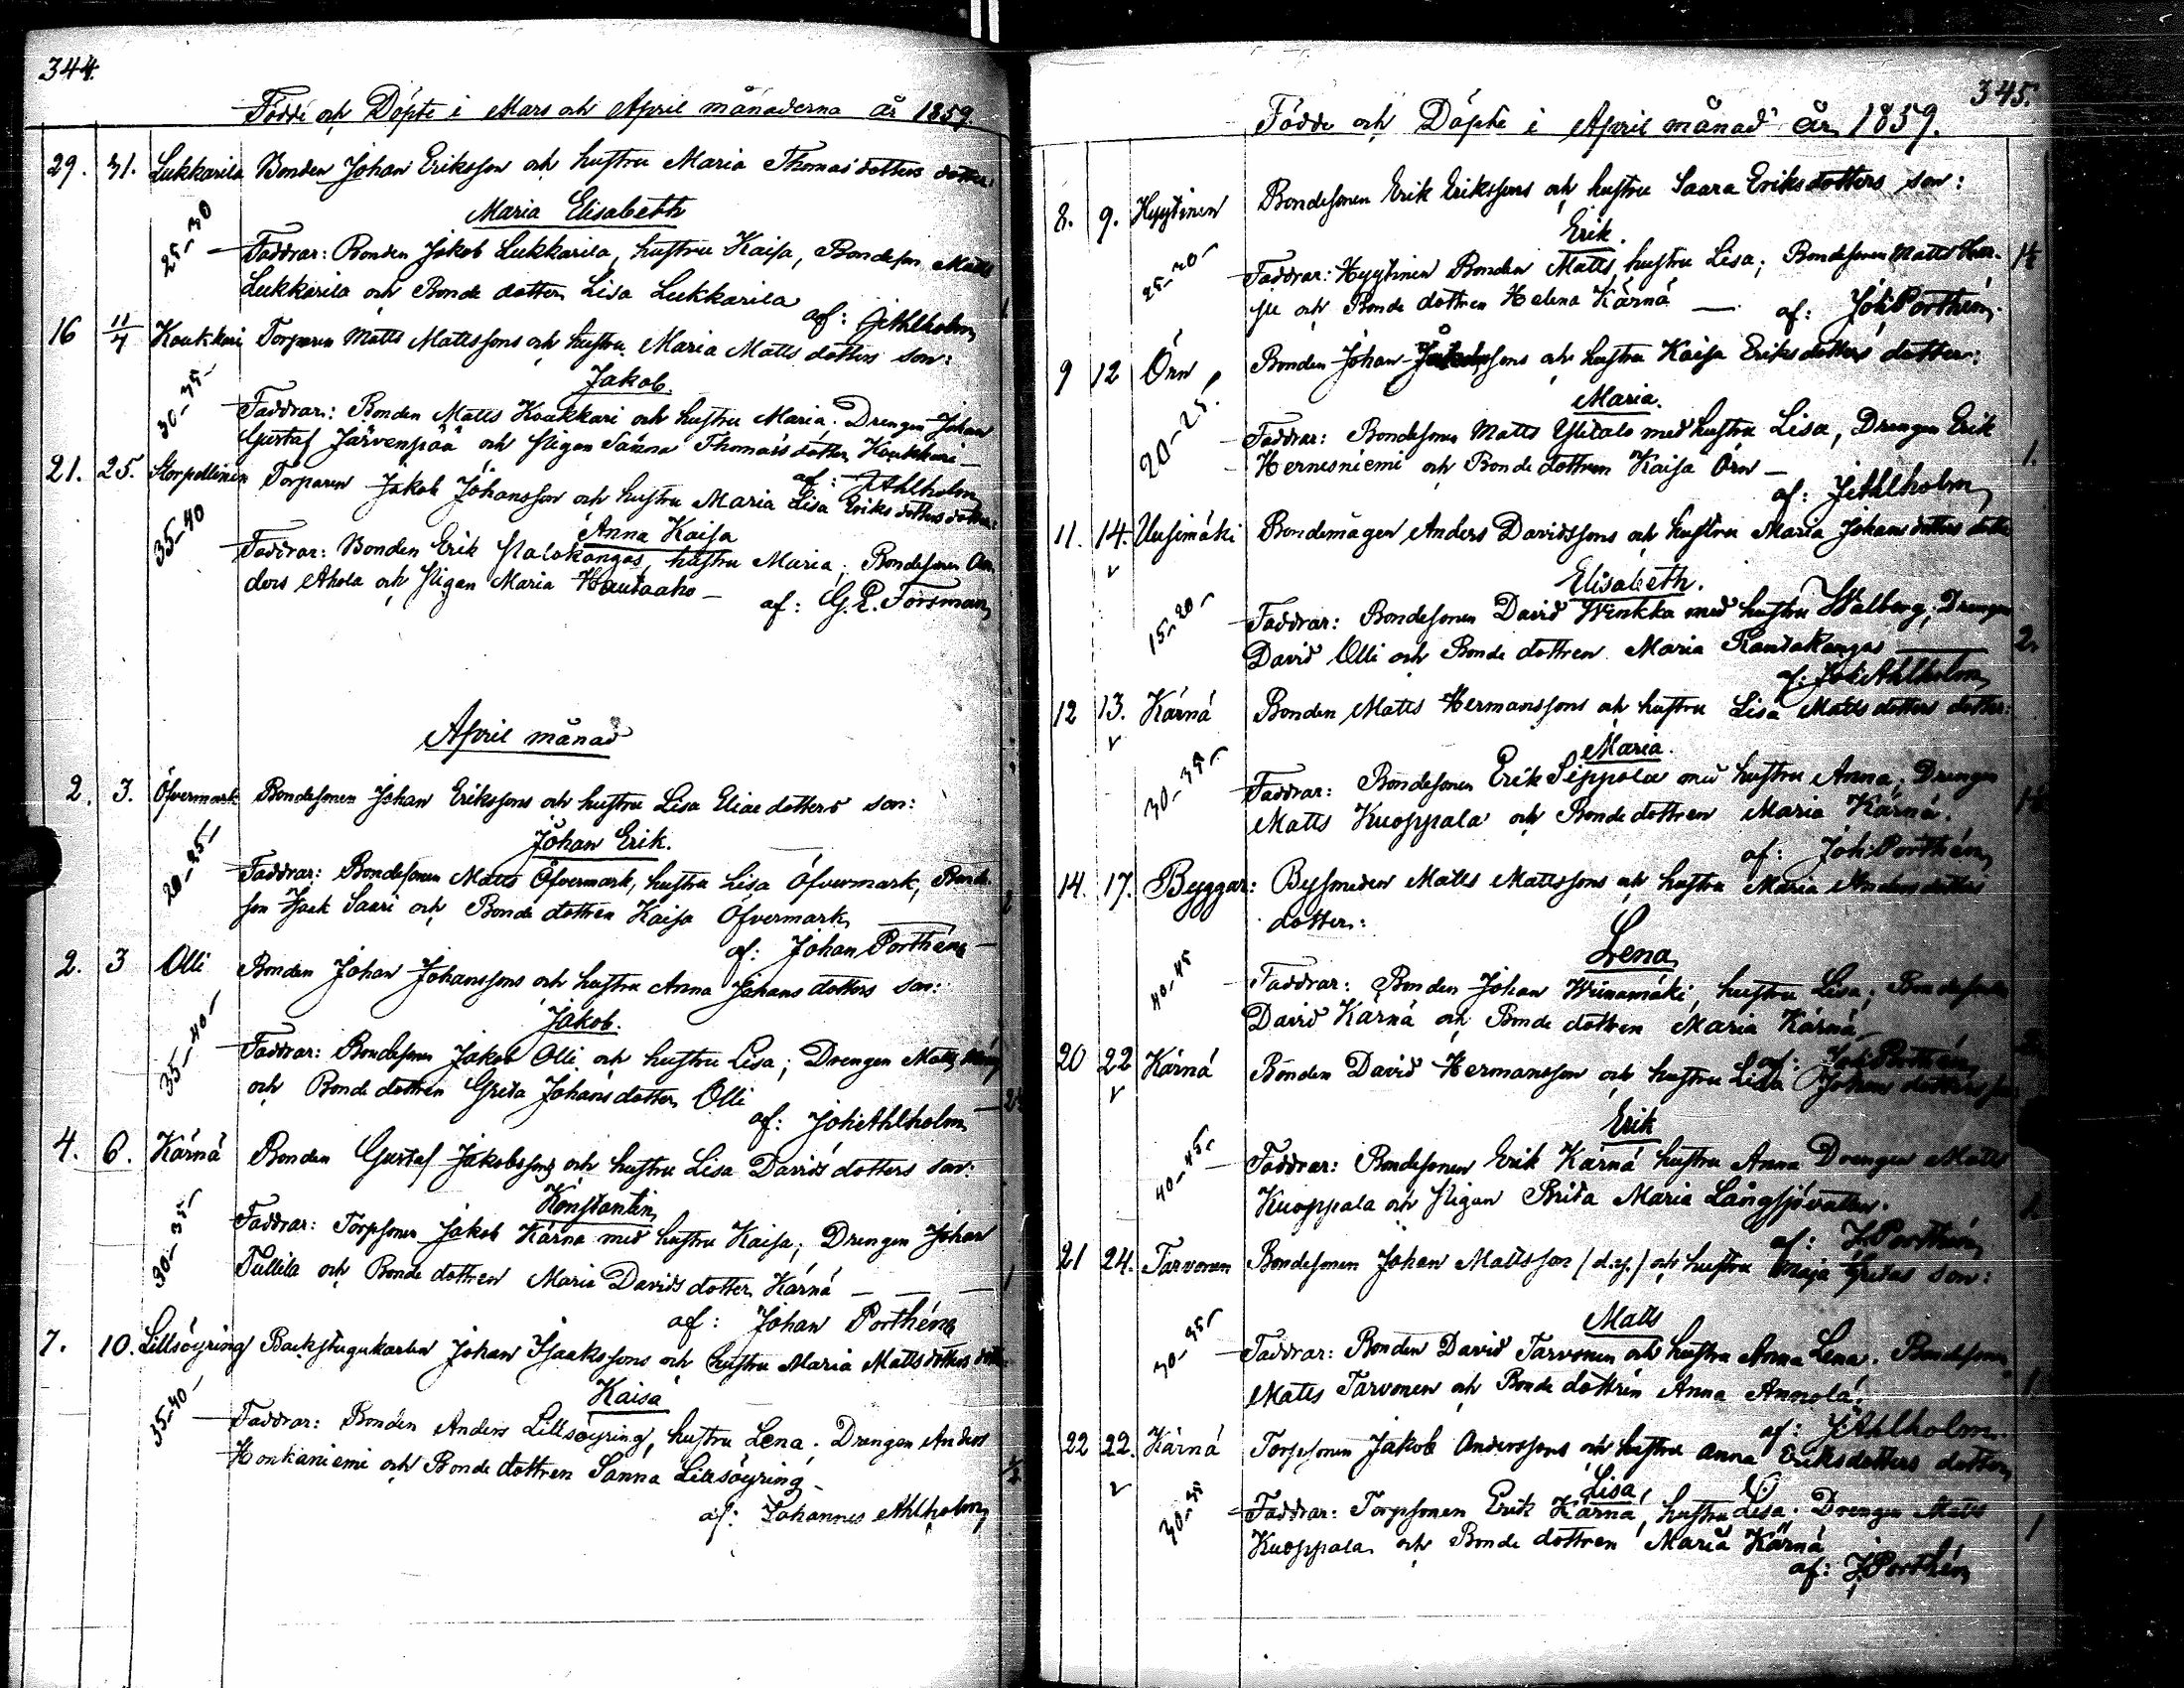 344.
Födde och Döpte i Mars och April månaderna år 1859
29. 31. Lukkarila Bonden Johan Eriksson och hustru Maria Thomasdotters dotter:
Maria Elisabeth
25-30
Faddrar: Bonden Jakob Lukkarila, hustru Kaisa, Bondeson Matts
Lukkarila och Bonde dotter Lisa Lukkarila
af: J Ahlholm 1
16 11/4 Koukkari Torparen Matts Mattssons och hustru Maria Matts dotters son:
Jakob.
30-35-
Faddrar: Bonden Matts Koukkari och hustru Maria. Drengen Johan
Gustaf Järvenpää och Pigan Sanna Thomas dotter Koukkari-
af: J Ahlholm
21. 25. Storpellinen Torparen Jakob Johansson och hustru Maria Lisa Eriks dotters dotter:
Anna Kaisa
35-40
Faddrar: Bonden Erik Palokangas, hustru Maria; Bondesonen An-
ders Ahola och Pigan Maria Hautaaho -
af: G. E. Forsman
April månad
2. 3. Öfvermark Bondesonen Johan Erikssons och hustru Lisa Eliae dotters son:
Johan Erik.
20-25-
Faddrar: Bondesonen Matts Öfvermark, hustru Lisa Öfvermark, Bonde-
son Isak Saari och Bonde dottren Kaisa Öfvermark
af: Johan Porthén -
2. 3 Olli Bonden Johan Johanssons och hustru Anna Johans dotters son:
Jakob.
35-40-
Faddrar: Bondesonen Jakob Olli och hustru Lisa; Drengen Matts
och Bonde dottren Greta Johans dotter Olli
af: Joh Ahlholm
4. 6. Kärnä Bonden Gustaf Jakobssons och hustru Lisa Davids dotters son:
Konstantin
30-35-
Faddrar: Torpsonen Jakob Kärnä med hustru Kaisa; Drengen Johan
Tullila och Bonde dottren Maria Davids dotter Kärnä - - - 1
af: Johan Porthén
7. 10. Lillsöyring Backstugukarlen Johan Isakssons och hustru Maria Matts dotters dotter:
Kaisa
35-40-
Faddrar: Bonden Anders Lillsöyring, hustru Lena; Drengen Anders
Honkaniemi och Bonde dottren Sanna Lillsöyring - 1/2
af: Johannes Ahlholm
345.
Födde och Döpte i April månad år 1859.
8. 9. Hyytinen Bondesonen Erik Erikssons och hustru Saara Eriks dotters son:
Erik.
25-30-
Faddrar: Hyytinen Bonden Matts, hustru Lisa; Bondesonen Matts Har-
ju och Bonde dottren Helena Kärnä — 1 1/2
af: Joh Porthén.
9 12 Örn Bonden Johan Jakobssons och hustru Kaisa Eriks dotters dotter:
Maria.
20-25.
Faddrar: Bondesonen Matts Ylitalo med hustru Lisa, Drengen Erik
Hernesniemi och Bonde dottren Kaisa Örn - 1.
af: J Ahlholm
11. 14. Uusimäki Bondemågen Anders Davidssons och hustru Maria Johans dotters dotter
Elisabeth.
15-20-
Faddrar: Bondesonen David Winkka med hustru Walborg; Drengen
David Olli och Bonde dottren Maria Rantakangas — 2.
af: Joh Ahlholm
12 13. Kärnä Bonden Matts Hermanssons och hustru Lisa Matts dotters dotter:
Maria.
30-35-
Faddrar: Bondesonen Erik Seppola med hustru Anna; Drengen
Matts Kuoppala och Bonde dottren Maria Kärnä.
af: Joh Porthén
14. 17. Byggar: Bysmeden Matts Mattssons och hustru Maria Anders dotters
dotter:
Lena
40-45
Faddrar: Bonden Johan Wiinamäki, hustru Lisa; Bondesonen
David Kärnä och Bonde dottren Maria Kärnä -
af: Joh Porthén
20 22 Kärnä Bonden David Hermansson och hustru Lisa Johans dotters son
Erik
40-45-
Faddrar: Bondesonen Erik Kärnä hustru Anna Drengen Matts
Kuoppala och Pigan Brita Maria Långsjövallen.
af: J. Porthén
21 24. Tarvonen Bondesonen Johan Mattsson (d.y.) och hustru Maja Gretas son:
Matts
30-35-
Faddrar: Bonden David Tarvonen och hustru Anna Lena. Bondesonen
Matts Tarvonen och Bonde dottren Anna Annola. 1
af: J Ahlholm.
22 22. Kärnä Torpsonen Jakob Anderssons och hustru Anna Eriksdotters dotter
Lisa
30-35
Faddrar: Torpsonen Erik Kärnä, hustru Lisa. Drengen Matts
Kuoppala och Bonde dottren Maria Kärnä 1
af: J. Porthén